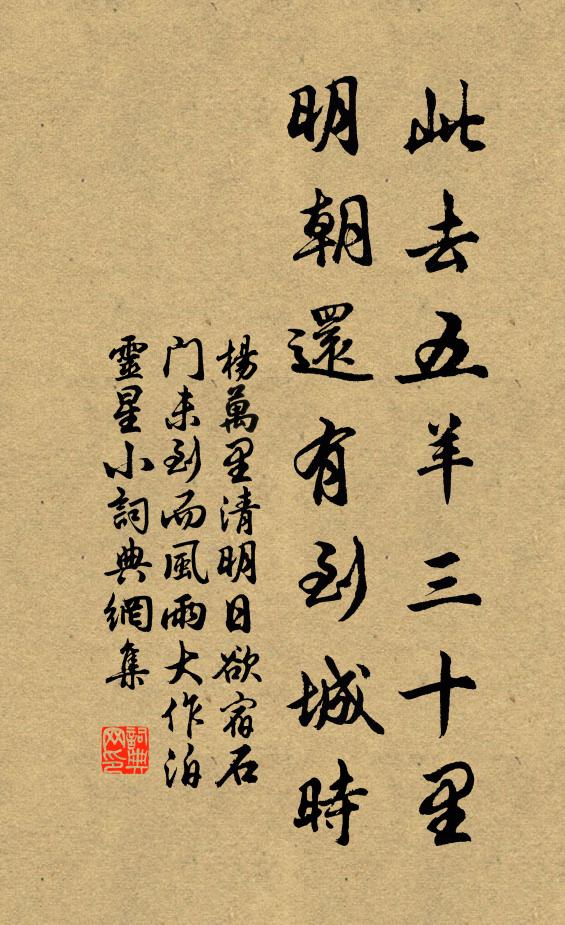 此去五羊三十里
明朝還有到城時
楊萬里清明日欲宿石
门未到而風雨大作泊
靈星小詞典網集
詞典
网印